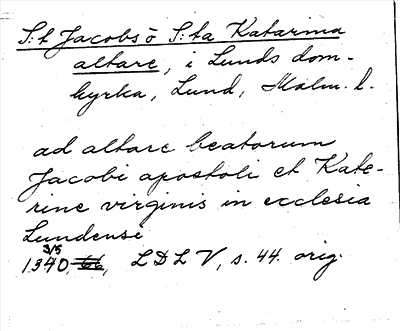 S:t Jacobs o S:ta Katarina
altare, i Lunds dom-
kyrka, Lund, Malm. l.
ad altare beatorum
Jacobi apostoli et Kate-
rine virginis in ecclesia
Lundensi
3/5
1340, LDLV, s. 44. orig.